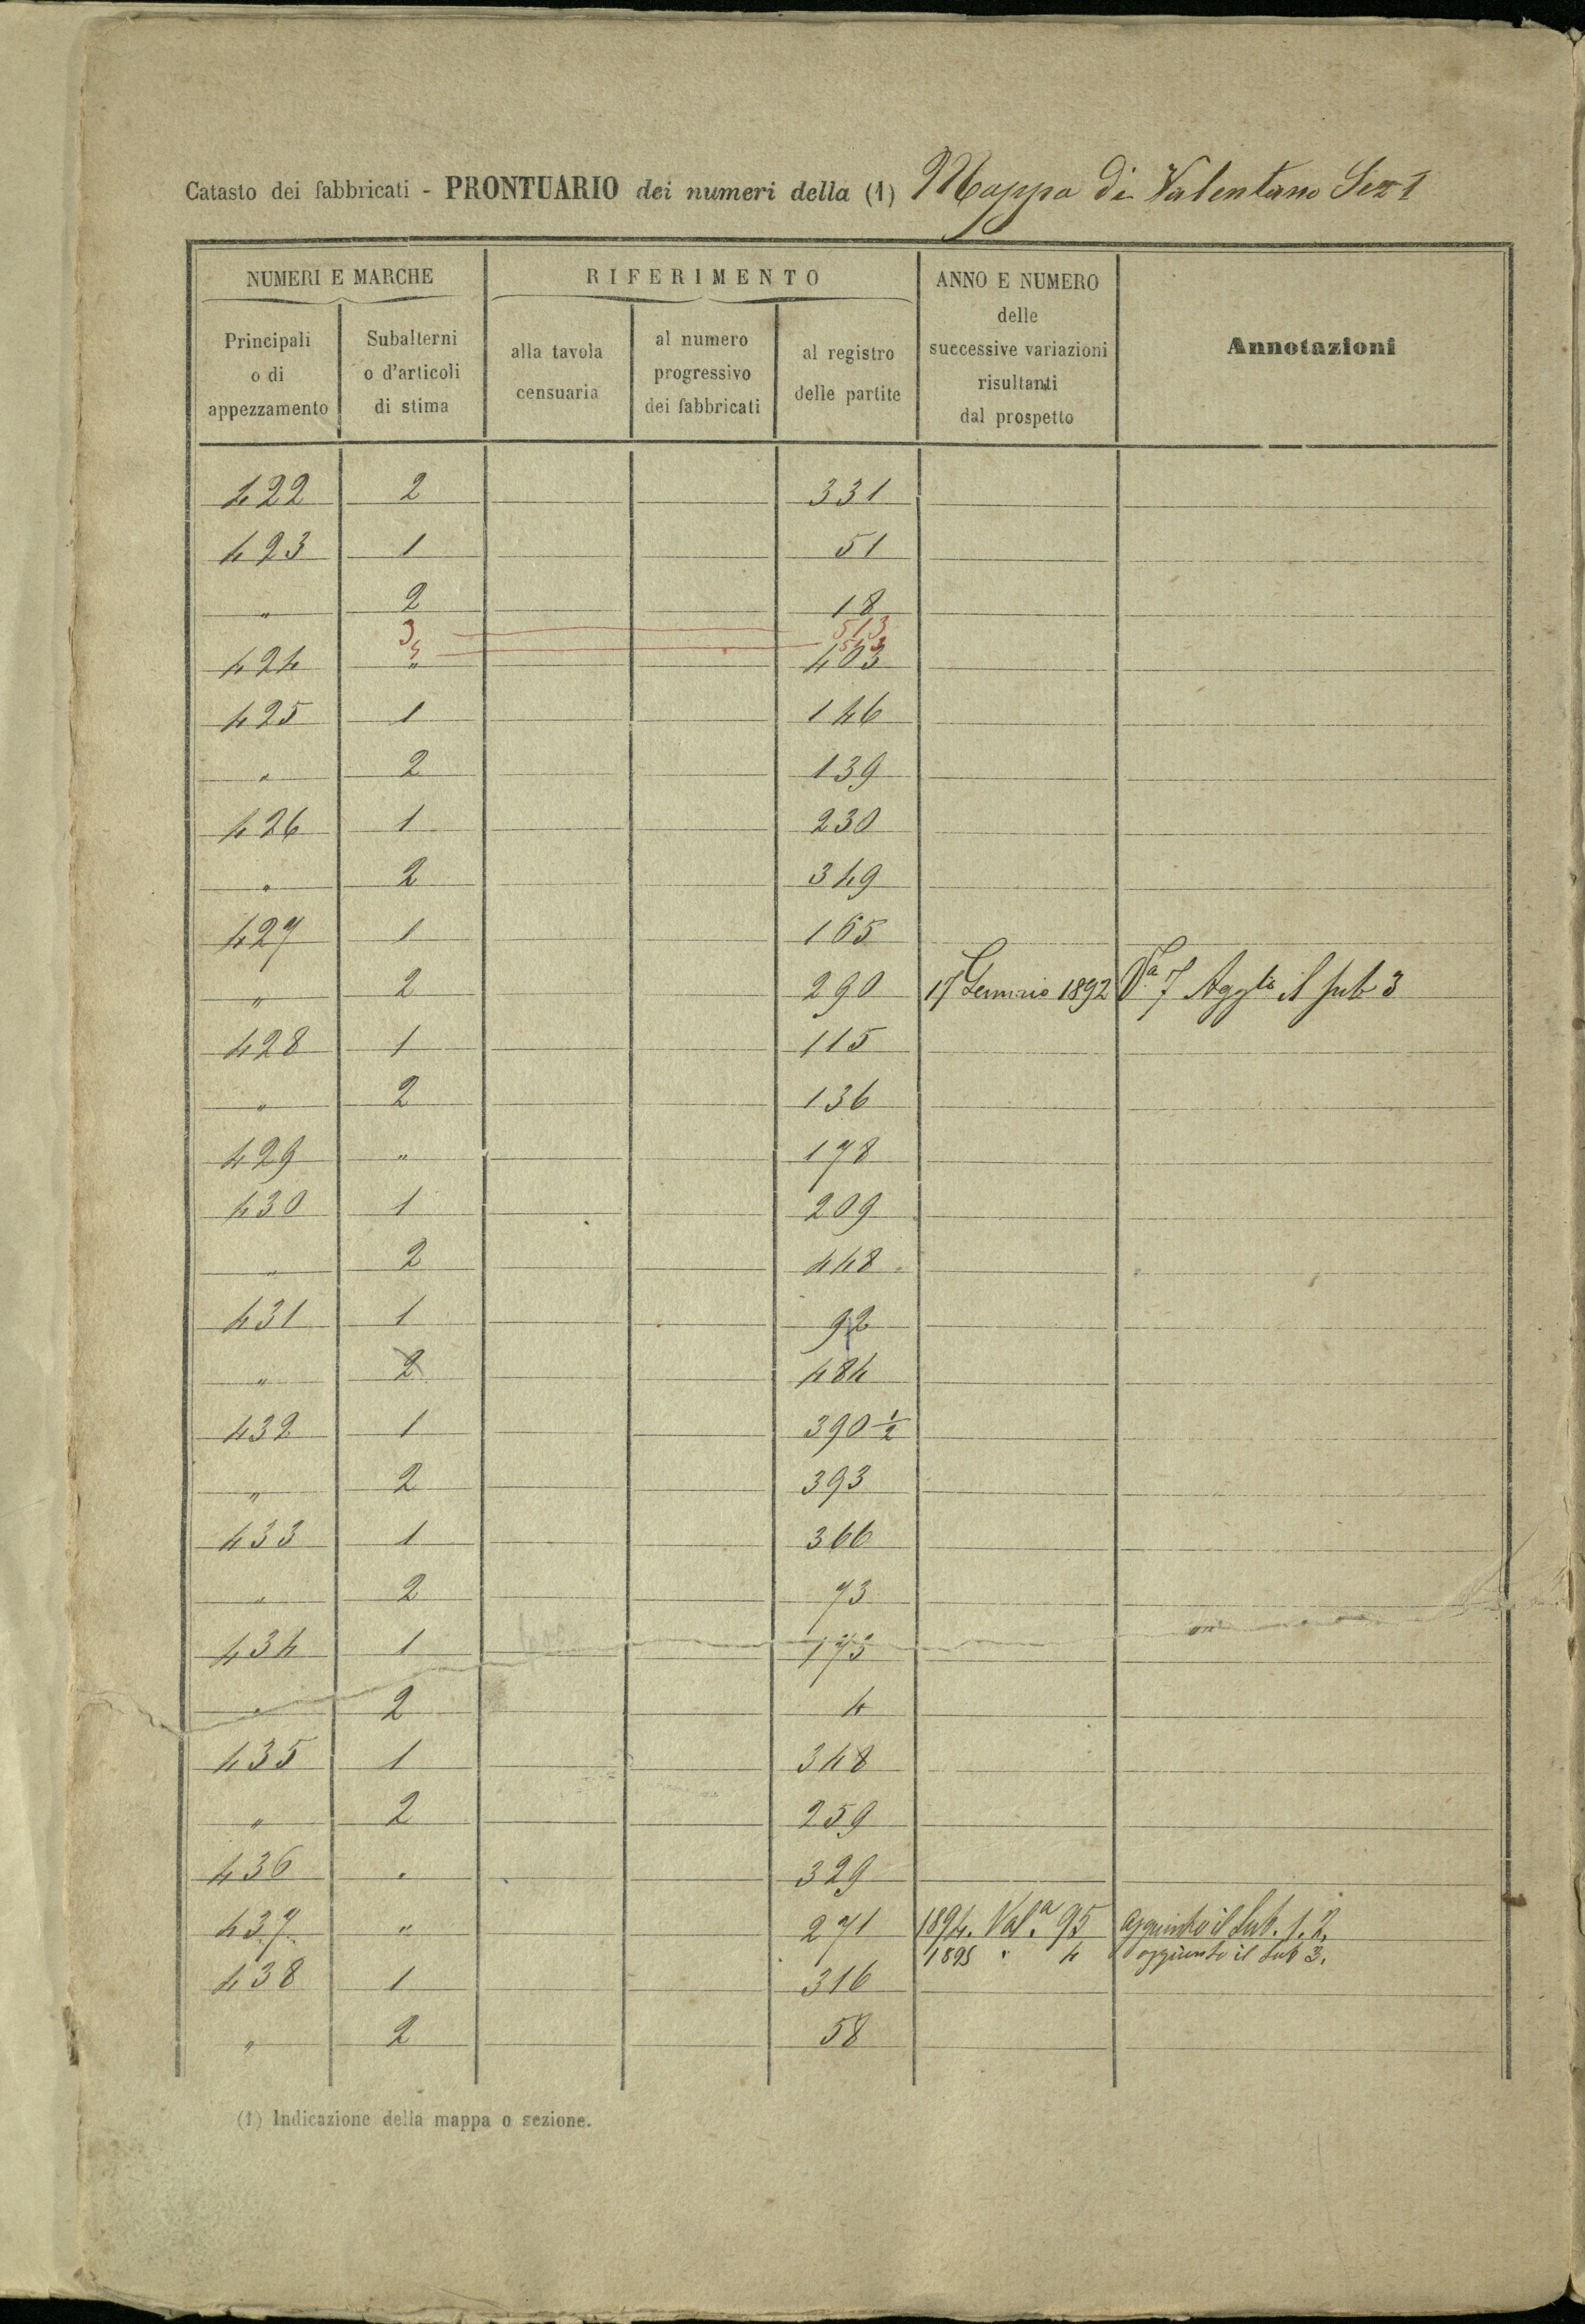 Catasto dei fabbricati - PRONTUARIO dei numeri della (1) Mappa di Valentano Sez 1
NUMERI E MARCHE RIFERIMENTO ANNO E NUMERO delle successive variazioni risultanti dal prospetto Annotazioni
Principali o di appezzamento Subalterni o d'articoli di stima alla tavola censuaria al numero progressivo dei fabbricati al registro delle partite
422 2 331
423 1 51
" 2 18
3 513
424 " 403
425 1 146
" 2 139
426 1 230
" 2 349
427 1 165
" 2 290 17 Gennaio 1892 Va 7 Aggta il sub 3
428 1 115
" 2 136
429 " 178
430 1 209
" 2 448
431 1 92
" 2 484
432 1 390 1/2
" 2 393
433 1 366
" 2 73
434 1 173
" 2 4
435 1 348
" 2 259
436 " 329
437 " 271 1894. Vol.a 95 aggiunto il Sub. 1. 2.
1895 " 4 aggiunto il sub 3.
438 1 316
" 2 58
(1) Indicazione della mappa o sezione.